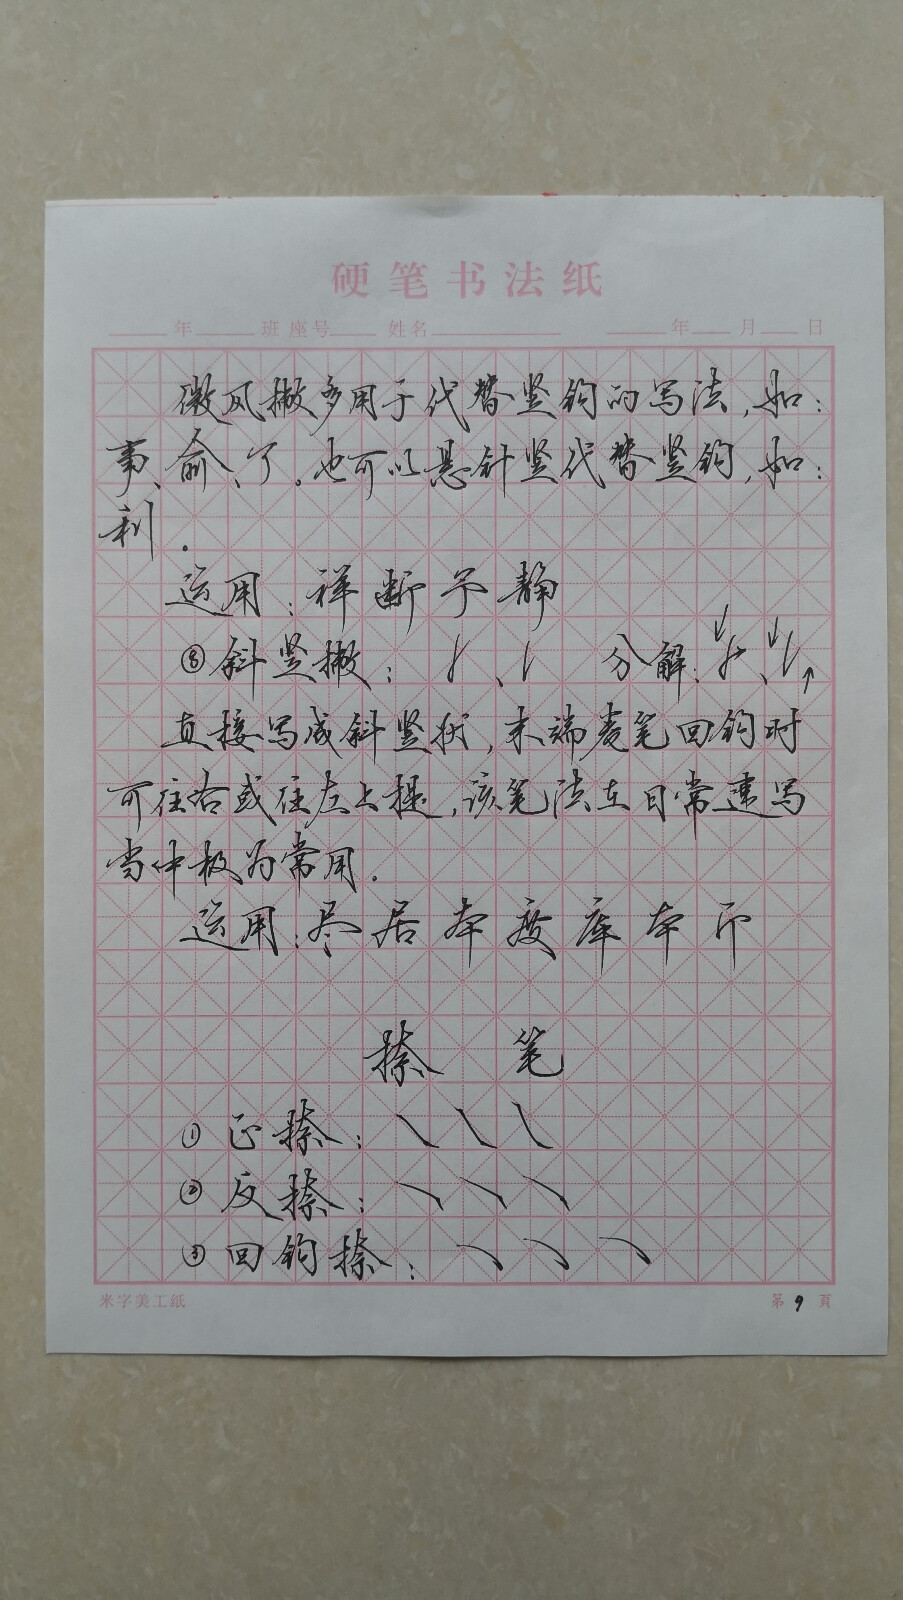 硬笔书法纸
年 班 座号 姓名 年 月 日
微风撇多用于代替竖钩的写法,如:
事、俞、了。也可以悬针竖代替竖钩,如:
利.
运用:祥断予静
⑧斜竖撇: 、 分解: 、
直接写成斜竖状,末端卷笔回钩时
可往右或往左上提,该笔法在日常速写
当中极为常用.
运用:尽居本度库本印
捺 笔
① 正捺:
② 反捺:
③ 回钩捺:
米字美工纸 第 9 頁